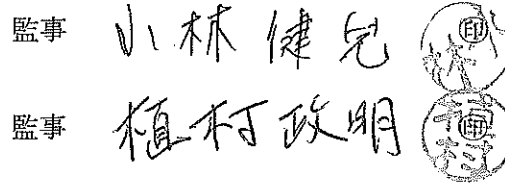 監事 小林健児 ㊞
監事 植村政明 ㊞